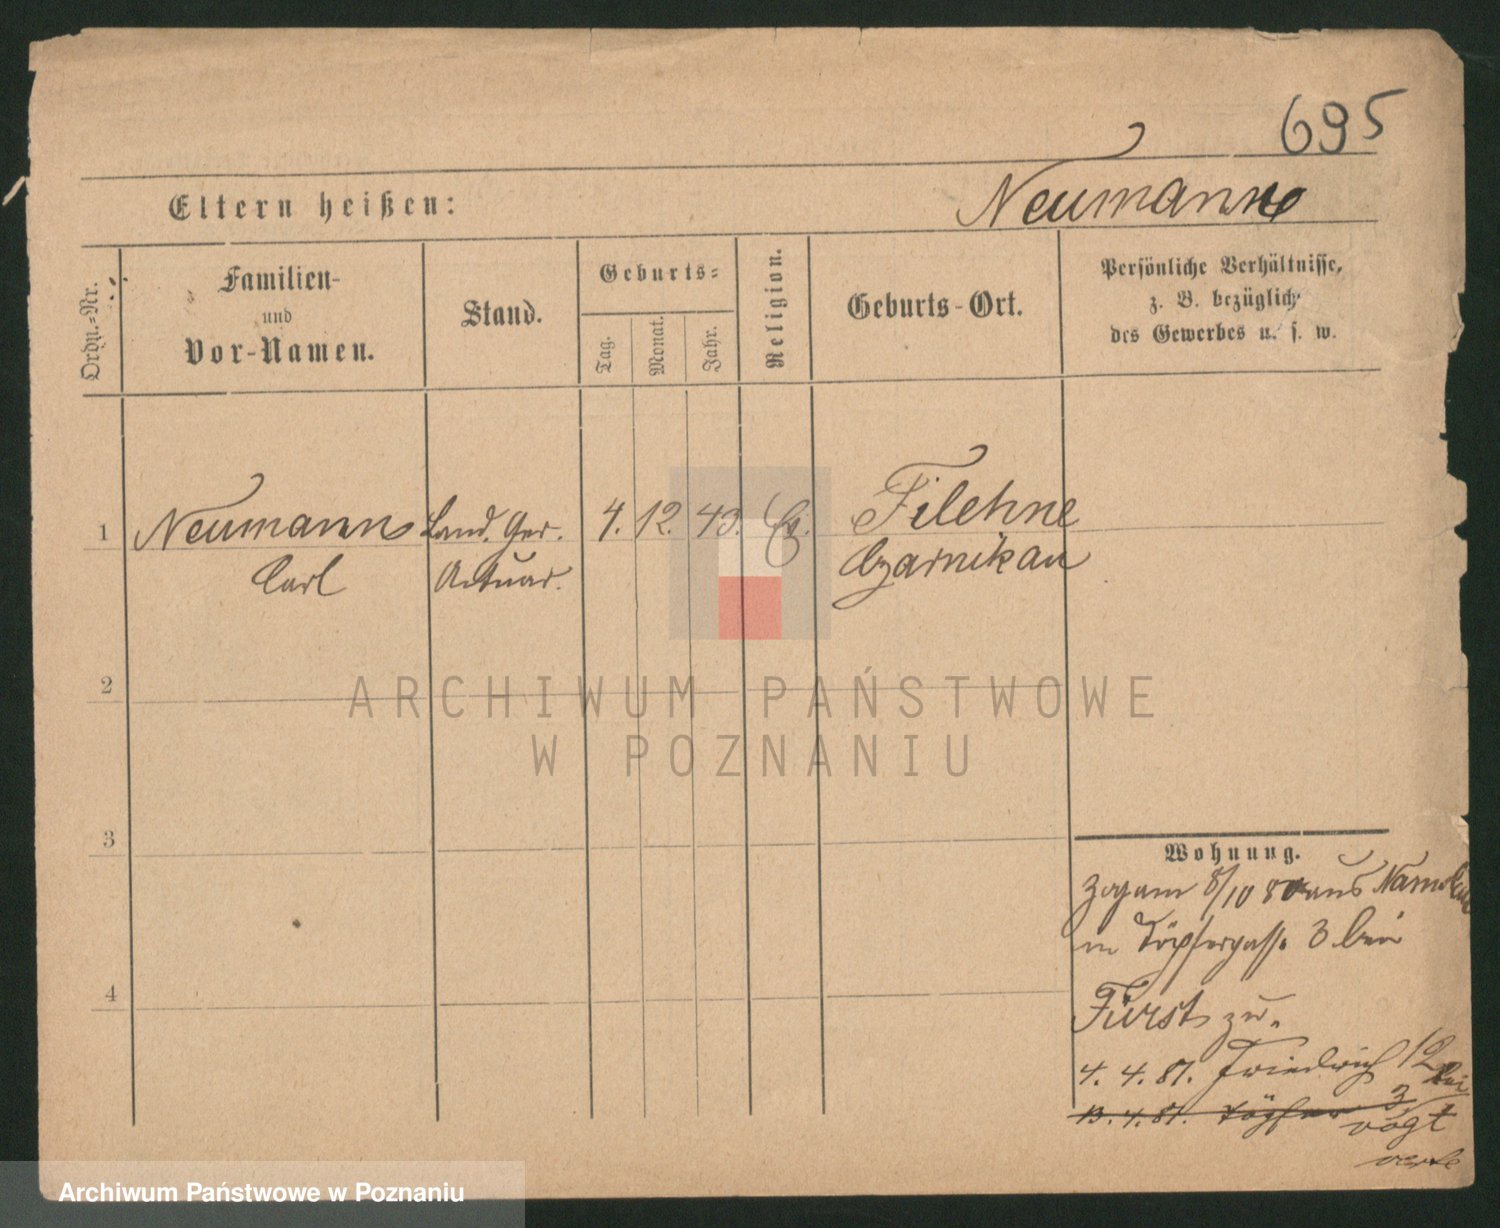 695
Eltern heißen:
Neumann
Ordn.-Nr.
Familien-
und
Vor-Namen.
Stand.
Geburts-
Tag.
Monat.
Jahr.
Religion.
Geburts-Ort.
Persönliche Verhältnisse,
z. B. bezüglich
des Gewerbes u. s. w.
1
Neumann
Carl
Land. Ger.
Actuar.
4. 12. 43. Ev.
Filehne
Czarnikau
2
3
4
Wohnung.
zog am 8/10 80 aus
in Töpfergasse 3 bei
Fürst zu.
4. 4. 81. Friedrich 12 bei
13. 4. 81. Töpfer 3
Vogt
verte
ARCHIWUM PAŃSTWOWE
W POZNANIU
Archiwum Państwowe w Poznaniu